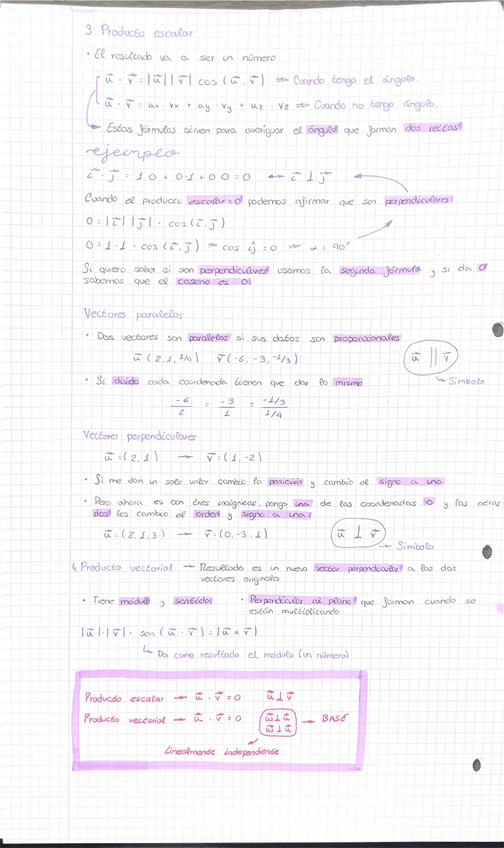 3. Producto escalar
• El resultado va a ser un número
u⃗ · v⃗ = |u⃗| |v⃗| cos (u⃗, v⃗) ⇒ Cuando tengo el ángulo.
u⃗ · v⃗ = ux · vx + uy · vy + uz · vz ⇒ Cuando no tengo ángulo.
→ Estas fórmulas sirven para averiguar el ángulo que forman dos rectas
ejemplo
i⃗ · j⃗ = 1·0 + 0·1 + 0·0 = 0 ← i⃗ ⊥ j⃗
Cuando el producto escalar = 0 podemos afirmar que son perpendiculares
0 = |i⃗| |j⃗| · cos (i⃗, j⃗)
0 = 1 · 1 · cos (i⃗, j⃗) ⇒ cos ij = 0 ⇒ α = 90°
Si quiero saber si son perpendiculares usamos la segunda fórmula y si da 0
sabemos que el coseno es 0
Vectores paralelos
• Dos vectores son paralelos si sus datos son proporcionales
u⃗ (2, 1, 1/9) v⃗ (-6, -3, -1/3)
u⃗ || v⃗
→ Símbolo
• Si divido cada coordenada tienen que dar lo mismo
-6/2 = -3/1 = -1/3 / 1/9
Vectores perpendiculares
u⃗ = (2, 1) → v⃗ = (1, -2)
• Si me dan un solo valor cambio la posición y cambio el signo a uno
• Pero ahora es con tres incógnitas, pongo una de las coordenadas 0 y las otras
dos les cambio el orden y signo a una
u⃗ = (2, 1, 3) → v⃗ = (0, -3, 1)
u⃗ ⊥ v⃗
→ Símbolo
4. Producto vectorial → Resultado es un nuevo vector perpendicular a los dos
vectores originales
• Tiene módulo y sentido
• Perpendicular al plano que forman cuando se
están multiplicando
|u⃗| · |v⃗| · sen (u⃗ · v⃗) = |u⃗ × v⃗|
↳ Da como resultado el módulo (un número)
Producto escalar → u⃗ · v⃗ = 0 u⃗ ⊥ v⃗
Producto vectorial → u⃗ · v⃗ = 0
w⃗ ⊥ u⃗
w⃗ ⊥ u⃗
→ BASE
Linealmente independiente